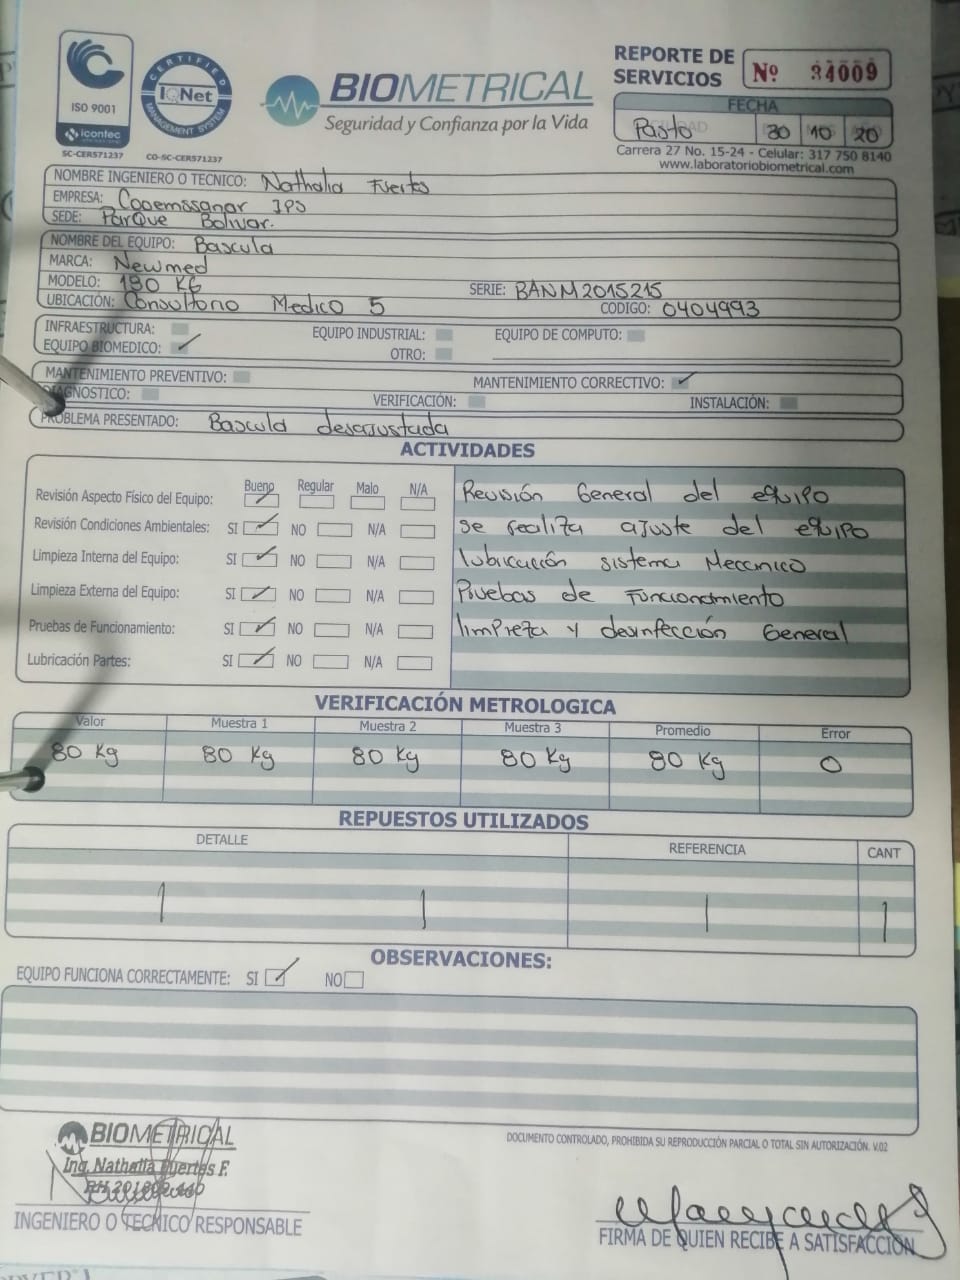 ISO 9001
icontec
SC-CER571237
CERTIFIED
IQNet
MANAGEMENT SYSTEM
CO-SC-CER571237
BIOMETRICAL
Seguridad y Confianza por la Vida
REPORTE DE SERVICIOS Nº 34009
FECHA
Pasto 30 10 20
Carrera 27 No. 15-24 - Celular: 317 750 8140
www.laboratoriobiometrical.com
NOMBRE INGENIERO O TECNICO: Nathalia Fuertes
EMPRESA: Coopemssanar IPS
SEDE: Parque Bolivar.
NOMBRE DEL EQUIPO: Bascula
MARCA: Newmed
MODELO: 180 KG SERIE: BANM2015215
UBICACIÓN: Consultorio Medico 5 CODIGO: 0404993
INFRAESTRUCTURA: EQUIPO INDUSTRIAL: EQUIPO DE COMPUTO:
EQUIPO BIOMEDICO: ✓ OTRO:
MANTENIMIENTO PREVENTIVO: MANTENIMIENTO CORRECTIVO: ✓
DIAGNOSTICO: VERIFICACIÓN: INSTALACIÓN:
PROBLEMA PRESENTADO: Bascula desajustada
ACTIVIDADES
Bueno Regular Malo N/A
Revisión Aspecto Físico del Equipo: ✓
Revisión Condiciones Ambientales: SI ✓ NO N/A
Limpieza Interna del Equipo: SI ✓ NO N/A
Limpieza Externa del Equipo: SI ✓ NO N/A
Pruebas de Funcionamiento: SI ✓ NO N/A
Lubricación Partes: SI ✓ NO N/A
Revisión General del equipo
se realiza ajuste del equipo
lubricación sistema Mecanico
Pruebas de Funcionamiento
limpieza y desinfección General
VERIFICACIÓN METROLOGICA
Valor Muestra 1 Muestra 2 Muestra 3 Promedio Error
80 Kg 80 Kg 80 Kg 80 Kg 80 Kg 0
REPUESTOS UTILIZADOS
DETALLE REFERENCIA CANT
OBSERVACIONES:
EQUIPO FUNCIONA CORRECTAMENTE: SI ✓ NO
BIOMETRICAL
Ing. Nathalia Fuertes F.
INGENIERO O TECNICO RESPONSABLE
DOCUMENTO CONTROLADO, PROHIBIDA SU REPRODUCCIÓN PARCIAL O TOTAL SIN AUTORIZACIÓN. V.02
FIRMA DE QUIEN RECIBE A SATISFACCIÓN